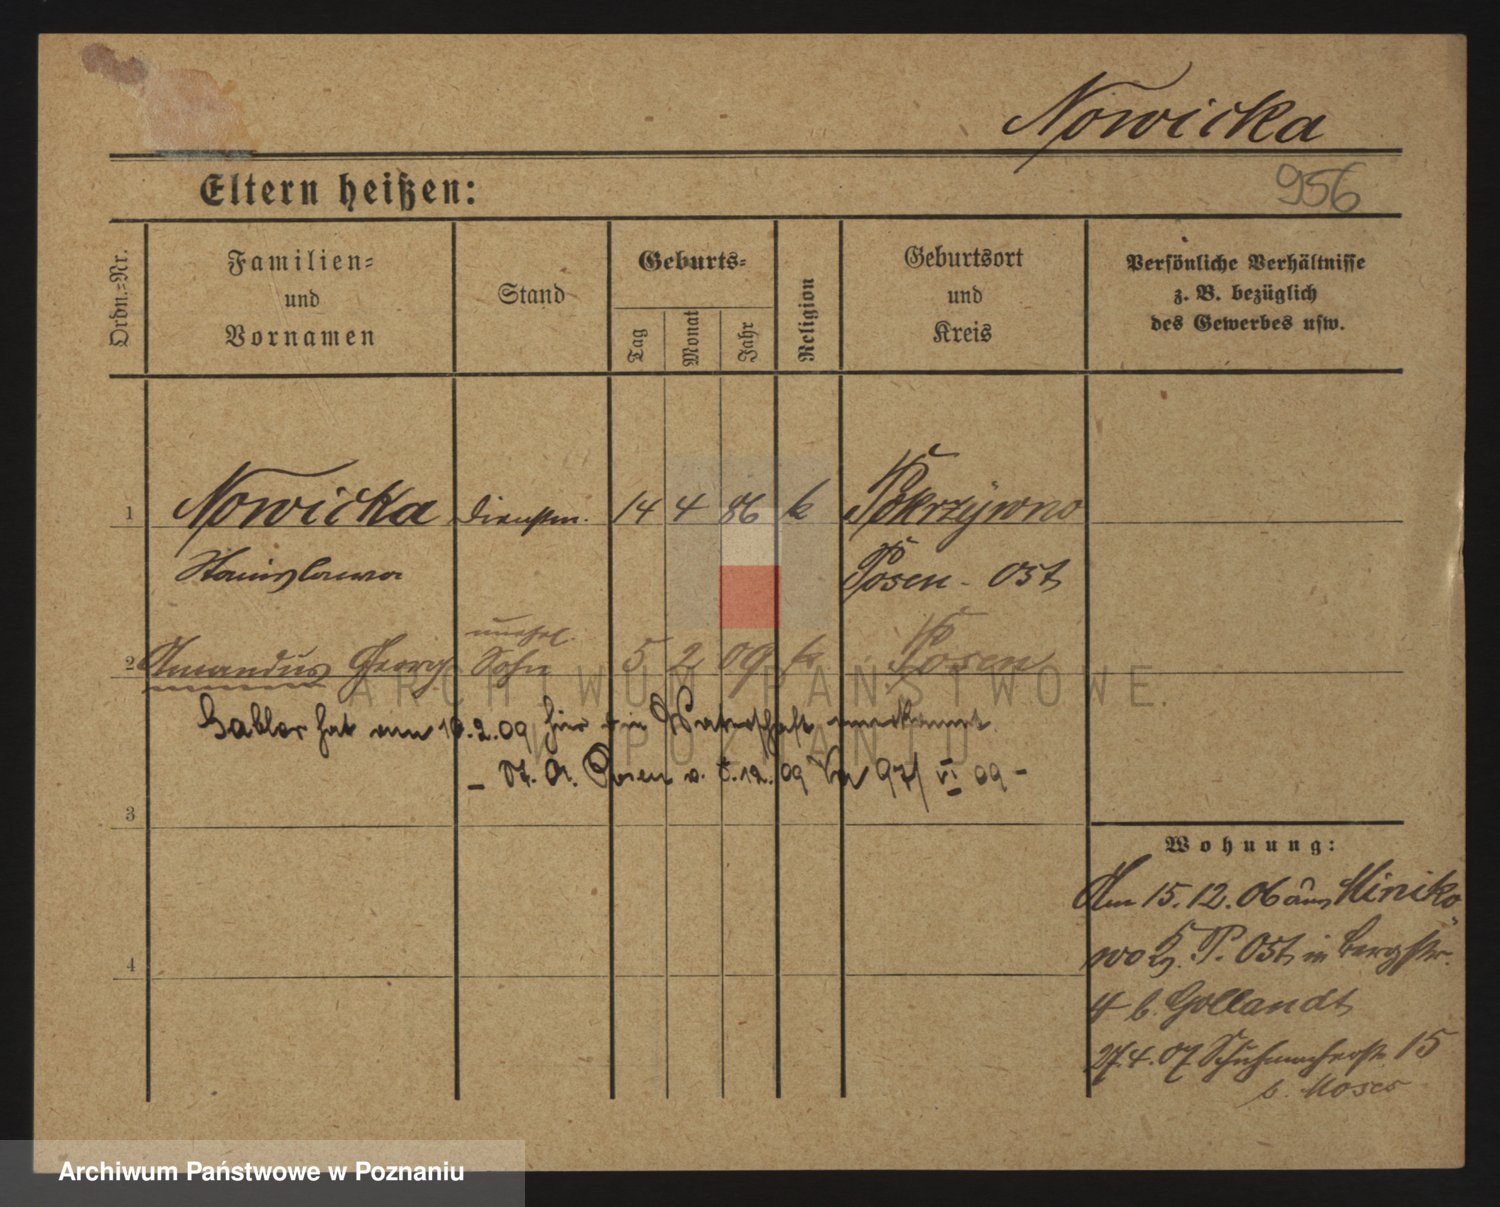 Nowicka
956
Eltern heißen:
Ordn.=Nr.
Familien=
und
Vornamen
Stand
Geburts=
Tag
Monat
Jahr
Religion
Geburtsort
und
Kreis
Persönliche Verhältnisse
z. B. bezüglich
des Gewerbes usw.
1 Nowicka Dienstm. 14 4 86 k Pokrzywno
Stanislawa Posen - Ost
unehel.
2 Amandus Georg Sohn 5 2 09 k. Posen
ARCHIWUM PAŃSTWOWE
W POZNANIU
hat am 2.09 hier die Vaterschaft anerkannt.
Posen v. 12. 09 97/VI 09 -
3
Wohnung:
Am 15.12.06 aus Miniko
wo P. Ost in Bergstr.
4 b. Gollandt
4
27.4.07 Schuhmacherstr. 15
b. Moses
Archiwum Państwowe w Poznaniu